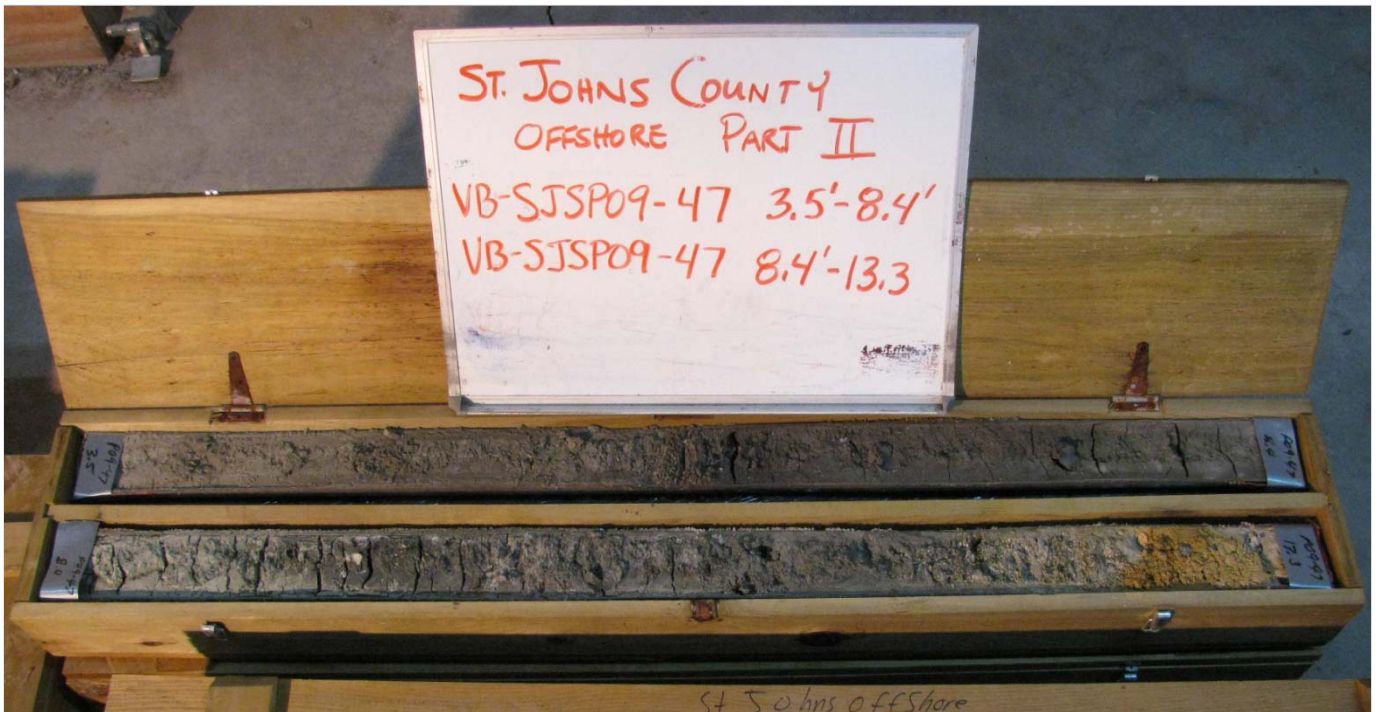 ST. JOHNS COUNTY
OFFSHORE PART II
VB-SJSP09-47 3.5'-8.4'
VB-SJSP09-47 8.4'-13.3
P09-47
3.5
P09-47
13.3
St Johns offshore